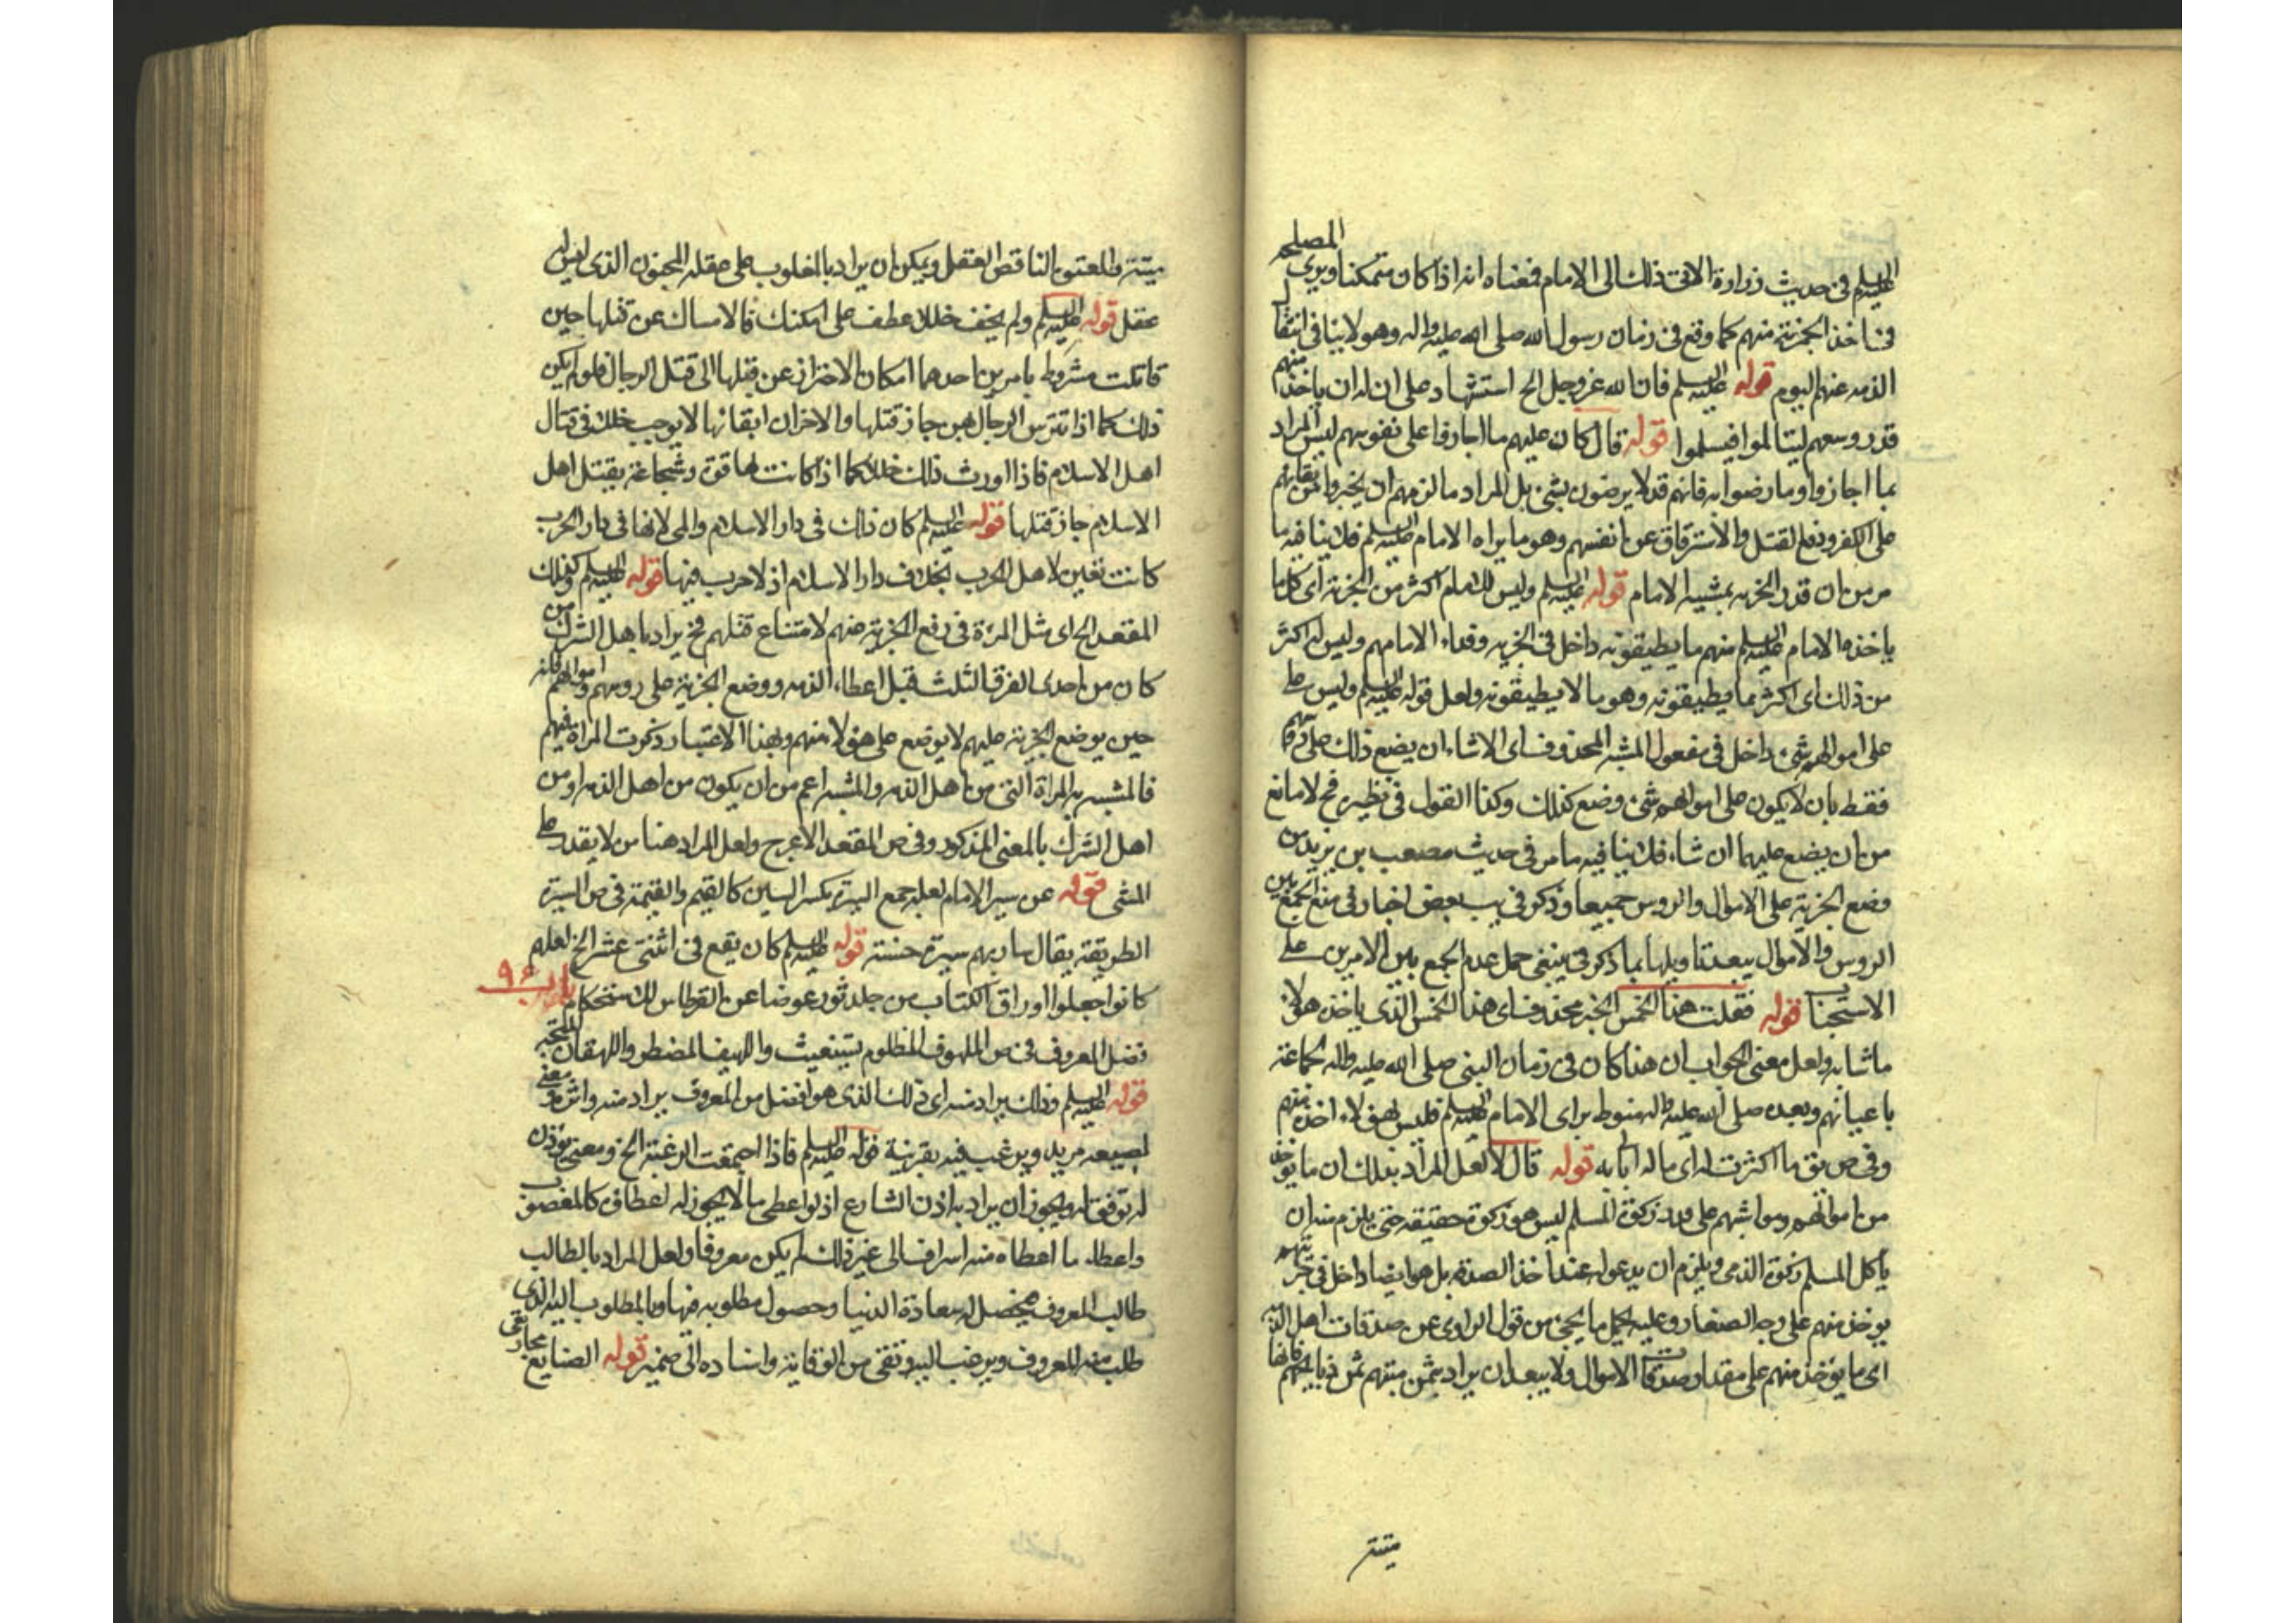 عليه السلم فى حديث زرارة الاتى ذلك الى الامام فمعناه انه اذا كان متمكنا ويرى المصلحه
فى اخذ الجزية منهم كما وقع فى زمان رسول الله صلى الله عليه واله وهو لا ينافى انتفا
الذمه عنهم اليوم قوله عليه السلم فان الله عز وجل الخ استشهاد على ان له ان ياخذ منهم
قدر وسعهم ليتالموا فيسلموا قوله قال كان عليهم ما اجازوا على نفوسهم ليس المراد
بما اجازوا وما رضوا به فانهم قد لا يرضون بشئ بل المراد ما لزمهم ان يجبروا من بقائهم
على الكفر ودفع القتل والاسترقاق عن انفسهم وهو ما يراه الامام عليه السلم فلا ينافيه ما
مر من ان قدر الجزيه بمشيه الامام قوله عليه السلم وليس للامام اكثر من الجزية اى كل ما
ياخذه الامام عليه السلم منهم ما يطيقونه داخل فى الجزيه وليس له اكثر
من ذلك اى اكثر مما يطيقونه وهو ما لا يطيقونه ولعل قوله عليه السلم وليس على
على اموالهم شئ داخل فى مفعول المشيه المحذوف اى الا شاء ان يضع ذلك على
فقط بان لا يكون على اموالهم شئ وضع كذلك وكذا القول فى نظيره فح لا مانع
من ان يضع عليهما ان شاء فلا ينافيه ما مر فى حديث مصعب بن يزيد من
وضع الجزية على الاموال والروس جميعا وذكر فى يب بعض اخبار فى منع الجمع بين
الروس والاموال يبعد تاويلها بما ذكر فى ينبغى حمل عدم الجمع بين الامرين على
الاستحباب قوله فقلت هذا الخمس الخبر محذوف اى هذا الخمس الذى ياخذه هولاء
ما شانه ولعل معنى الجواب ان هذا كان فى زمان النبى صلى الله عليه واله لجماعة
باعيانهم وبعده صلى الله عليه واله منوط براى الامام عليه السلم فليس لهؤلاء اخذه منهم
وفى ص يق ما اكثرت له اى ما له اباليه قوله قال لا لعل المراد بذلك ان ما يوخذ
من اموالهم ومواشيهم على قدر زكوة المسلم ليس هو زكوة حقيقه حتى يلزم منه ان
ياكل المسلم زكوة الذمى ويلزم ان يدعو له عند اخذ الصدقه بل هو ايضا داخل فى جزيتهم
يوخذ منهم على وجه الصغار وعليه يحمل ما يجئ من قول الراوى عن صدقات اهل الذمه
اى ما يؤخذ منهم على مقدار صدقات الاموال ولا يبعد ان يراد بثمن ميتتهم ثمن ذبايحهم فانها
ميتة
ميتة والمعتوه الناقص العقل ويمكن ان يراد بالمغلوب على عقله المجنون الذى ليس له
عقل قوله عليه السلم ولم يخف خللا عطف على امكنك فالامساك عن قتلها حين
قاتلت مشروط بامرين احدهما امكان الاحتراز عن قتلها الى قتل الرجال فلو لم يكن
ذلك كما اذا تترس الرجال بهن جاز قتلها والاخر ان ابقائها لا يوجب خللا فى قتال
اهل الاسلام فاذا اورث ذلك خللا كما اذا كانت لها قوة وشجاعة بقتل اهل
الاسلام جاز قتلها قوله عليه السلم كان ذلك فى دار الاسلام والى لانها فى دار الحرب
كانت تعين لاهل الحرب بخلاف دار الاسلام اذ لا حرب فيها قوله عليه السلم وكذلك
المقعد الخ اى مثل المرءة فى رفع الجزية عنهم لامتناع قتلهم فح يراد باهل الشرك من
كان من احدى الفرق الثلث قبل اعطاء الذمه ووضع الجزية على روسهم واموالهم فانه
حين يوضع الجزية عليهم لا يوضع على هؤلاء منهم وبهذا الاعتبار ذكرت المراة فيهم
فالمشبه به المراة التى من اهل الذمه والمشبه اعم من ان يكون من اهل الذمه او من
اهل الشرك بالمعنى المذكور وفى ص المقعد الاعرج ولعل المراد هنا من لا يقدر على
المشى قوله عن سير الامام لعله جمع السيرة بكسر السين كالقيم والقيمة فى ص السيرة
الطريقة يقال سار بهم سيرة حسنة قوله عليه السلم كان يقع فى اثنتى عشر الخ لعلهم
كانوا جعلوا اوراق الكتاب من جلد ثور عوضا عن القرطاس للاستحكام باب ٩٤
فضل المعروف فى ص الملهوف المظلوم يستغيث واللهيف المضطر واللهفان المتحير
قوله عليه السلم وذلك يراد منه اى ذلك الذى هو افضل من المعروف يراد منه واثره
لصيعه مريد ويرغب فيه بقرينة قوله عليه السلم فاذا اجتمعت الرغبة الخ ومعنى يؤذن
له توفق له ويجوز ان يراد به اذن الشارع اذ لو اعطى ما لا يجوز له اعطاؤه كالمغصوب
واعطاء ما اعطاه منه اسرافا الى غير ذلك لم يكن معروفا ولعل المراد بالطالب
طالب المعروف فيحصل له سعادة الدنيا وحصول مطلوبه فيها وبالمطلوب اليه الذى
طلب منه المعروف ويرغب اليه وتقى من الوقاية واسناده الى ضمير مجازى قوله الصنايع تقى